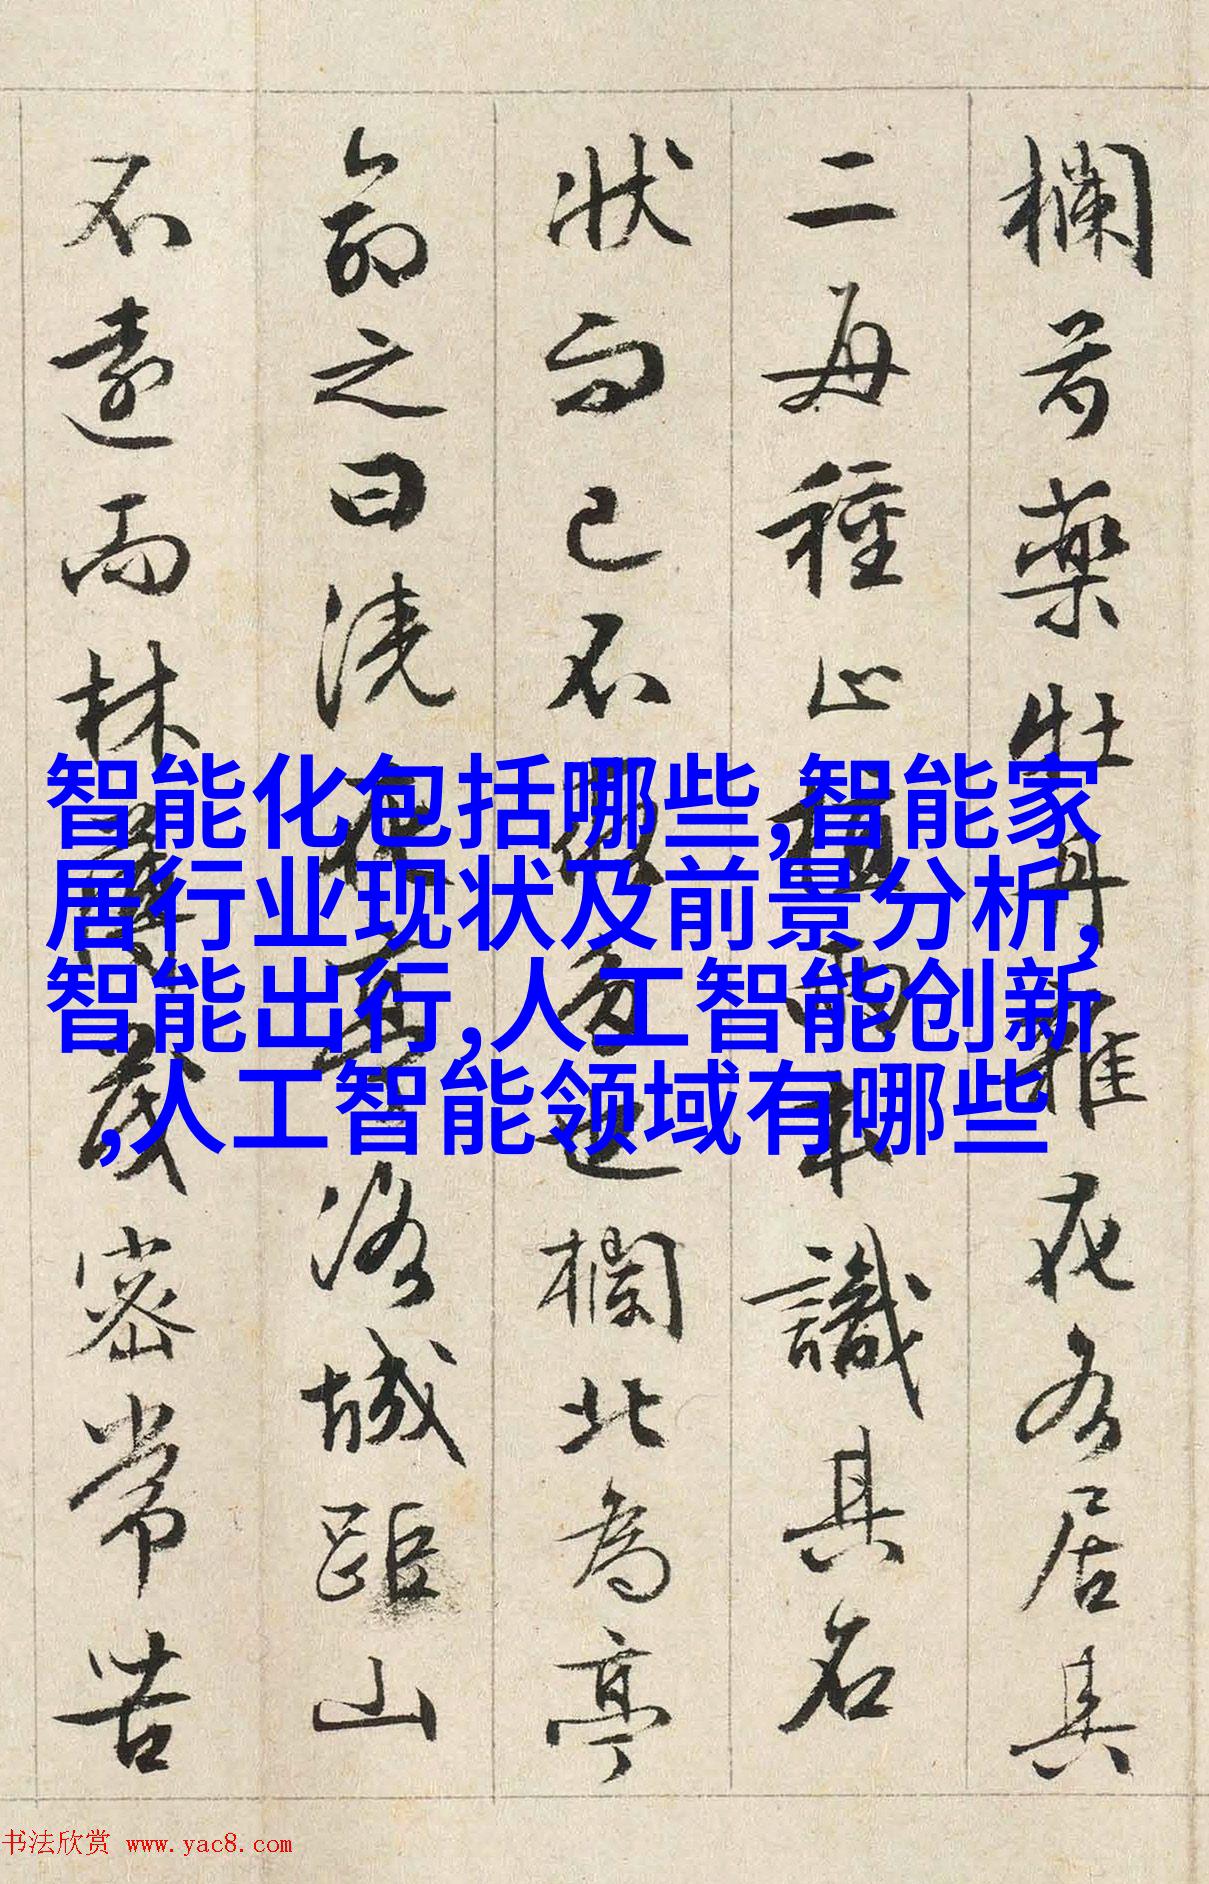 欄芍藥牡丹雜花各居其
二每種止植兩本識其名
狀而已不求多也欄北為亭
命之曰澆花亭洛城距山
不遠而林薄茂密常苦
智能化包括哪些,智能家
居行业现状及前景分析,
智能出行,人工智能创新
,人工智能领域有哪些
书法欣赏 www.yac8.com